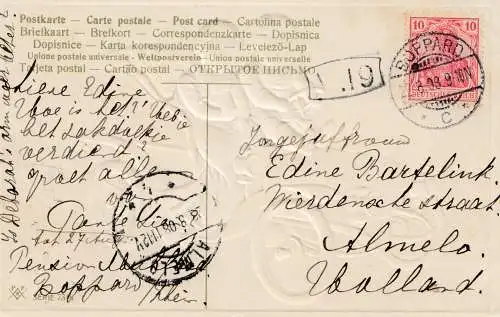 Postkarte - Carte postale - Post card - Cartolina postale
Briefkaart - Brefkort - Correspondenzkarte - Dopisnica
Dopisnice - Karta korespondencyjna - Levelező-Lap
Unione postale universale - Weltpostverein - Union postale universelle
Tarjeta postal - Cartão postal - ОТКРЫТОЕ ПИСЬМО
10 10
BOPPARD
C
1.19
Lieve Edine
Hoe is het? Heb je
het zakdoekje
verdiend?
groet allen
Tante
Pension
Boppard a/Rhein
SERIE
Jongejufvrouw
Edine Bartelink.
Wierdensche straat
Almelo.
Holland.
ALMELO